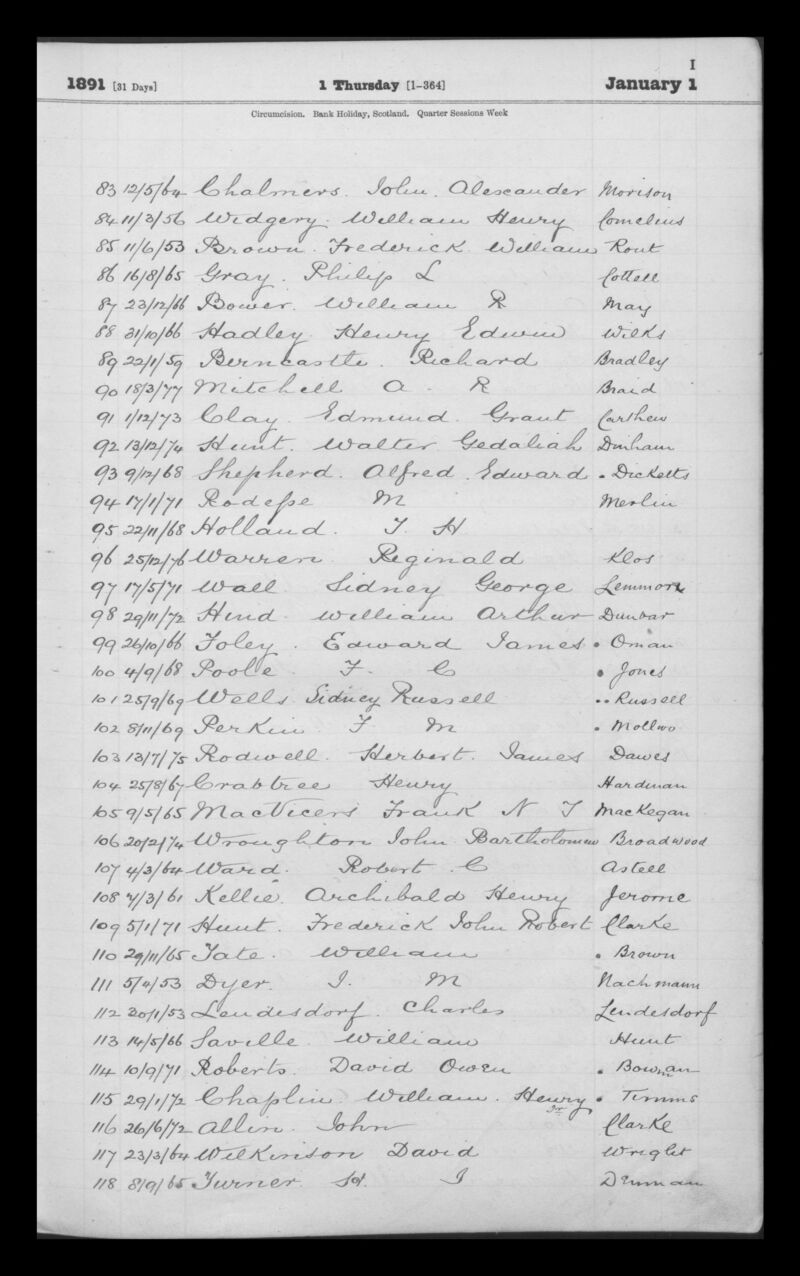 I
1891 [31 Days] 1 Thursday [1-364] January 1
Circumcision. Bank Holiday, Scotland. Quarter Sessions Week
83 12/5/64 Chalmers. John. Alexander Morison
84 11/3/56 Widgery. William Henry Cornelius
85 11/6/53 Brown. Frederick William Rout
86 16/8/65 Gray. Philip L Cottell
87 23/12/66 Bower. William R May
88 31/10/66 Hadley Henry Edwin Wilks
89 22/1/59 Berncastle. Richard Bradley
90 18/3/77 Mitchell A. R Braid
91 1/12/73 Clay. Edmund. Grant Carthew
92 13/12/74 Hunt. Walter Gedaliah Dinham
93 9/12/68 Shepherd. Alfred. Edward. Dicketts
94 17/1/71 Rodesse M Merlin
95 22/11/68 Holland. T. H
96 25/12/76 Warren. Reginald Klos
97 17/5/71 Wall. Sidney George Lemmon
98 29/11/72 Hind. William Arthur Dunbar
99 26/10/66 Foley. Edward James. Oman
100 4/9/68 Poole. F. C . Jones
101 25/9/69 Wells. Sidney Russell .. Russell
102 8/11/69 Perkin. F M . Mollwo
103 13/7/75 Rodwell. Herbert. James Dawes
104 25/8/67 Crabtree Henry Hardman
105 9/5/65 MacVicers Frank N T MacKegan
106 20/2/74 Wroughton John Bartholomew Broadwood
107 4/3/64 Ward. Robert. C Astell
108 7/3/61 Kellie. Archibald Henry Jerome
109 5/1/71 Hunt. Frederick John Robert Clarke
110 29/11/65 Tate. William . Brown
111 5/4/53 Dyer. J. M Nachmann
112 30/1/53 Lendesdorf. Charles Lendesdorf
113 14/5/66 Saville William Hunt
114 10/9/71 Roberts. David Owen . Bowman
115 29/1/72 Chaplin. William. Henry. Timms
116 26/6/72 Allin. John Jnr Clarke
117 23/3/64 Wilkinson David Wright
118 8/9/65 Turner. H. J Denman